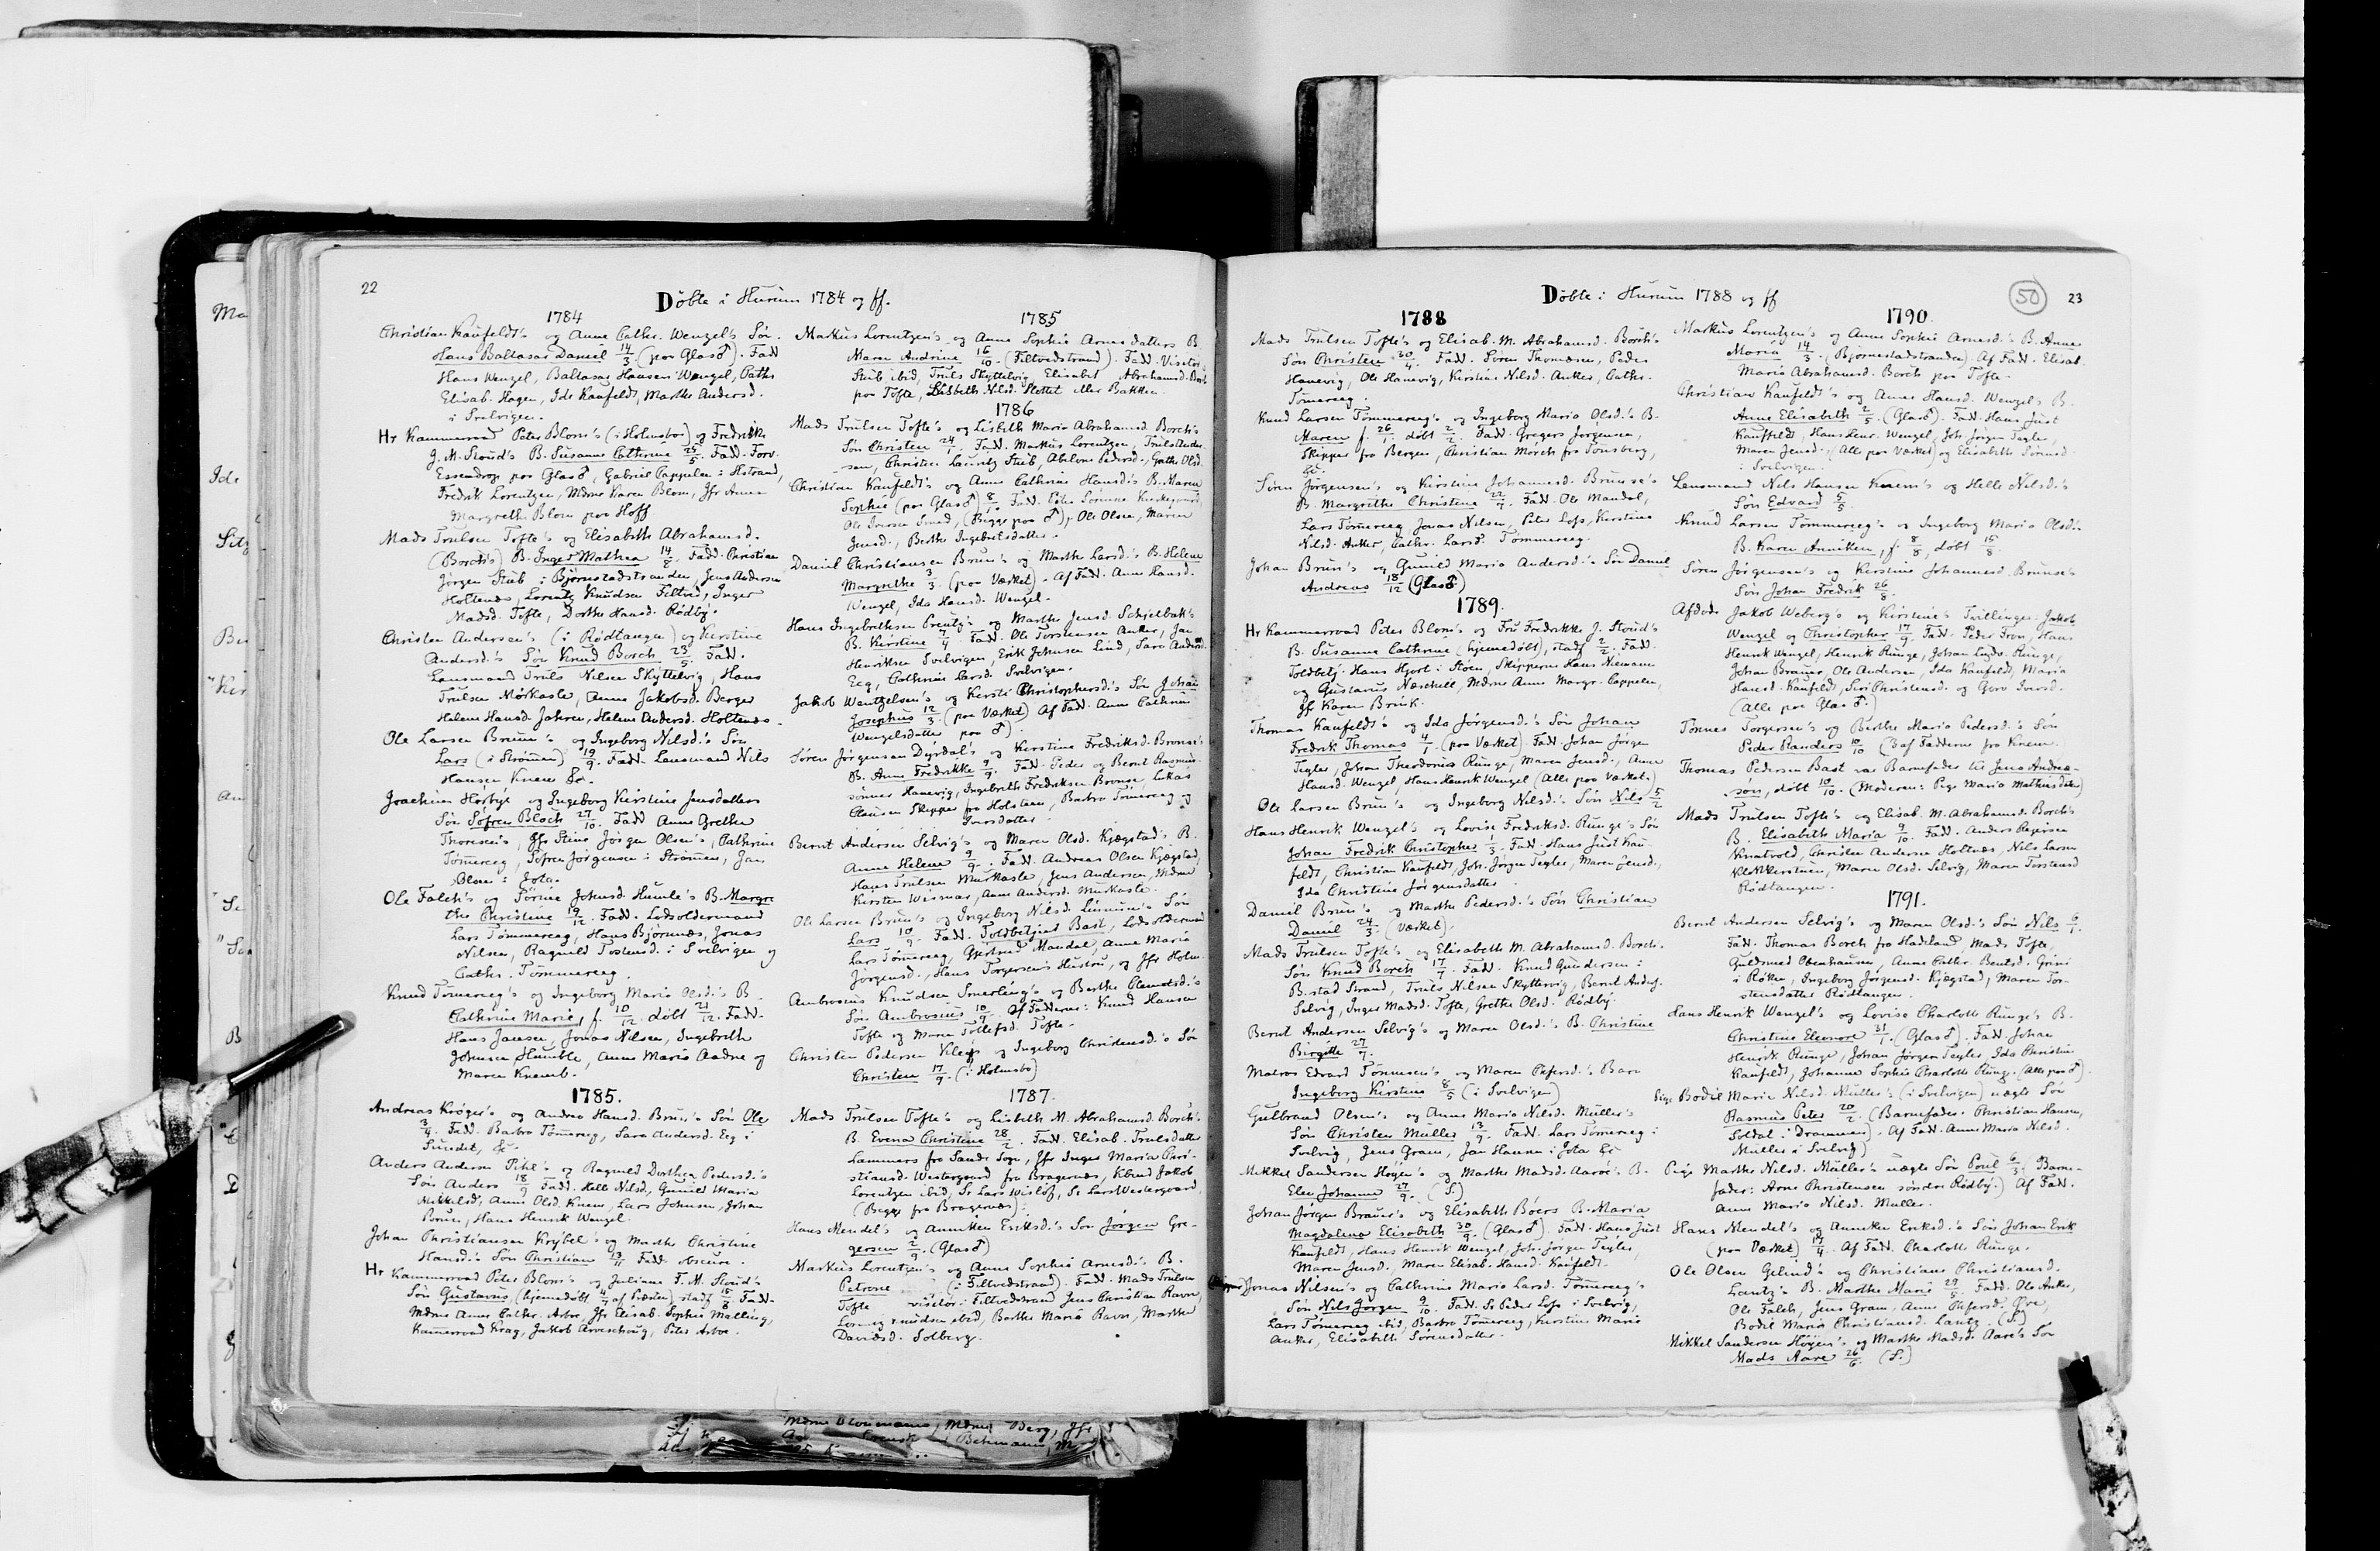 22
Döbte i Hurum 1784 og ff.
1784
Christian Kaufeldt's og Anne Cathr. Wenzel's Sør.
Hans Baltasar Daniel 14/3 (paa Glas♂). Fadd
Hans Wenzel, Baltasar Hansen Wenzel, Cathr
Elisab. Hagen, Ide Kaufeldt, Marthe Andersd.
i Svelvigen.
Hr Kammerraad Peter Blom's (i Holmsbo) og Fredrikke
J. M. Stoud's B. Susanne Cathrine 25/5. Fadd. Forv.
Essendrop paa Glas♂, Gabriel Cappelen i Hstrand,
Fredrik Lorentzen, Mdme Karen Blom, Jfr Anne
Margrethe Blom paa Hoff
Mads Trulsen Tofte's og Elisabeth Abrahamsd.
(Borch's) B. Inger Mathea 14/8. Fadd. Christian
Jørgen Stub i Bjørnstadstranden, Jens Andersen
Holtenæs, Lorentz Knudsen Filtvid, Inger
Madsd. Tofte, Dorthe Hansd. Rødby.
Christen Andersen's (i Rødtangen) og Kirstine
Andersd.'s Søn Knud Borch 23/5. Fadd.
Lensmand Truls Nilsen Skyttelvig, Hans
Trulsen Mörkasle, Anne Jakobsd. Berger
Helene Hansd. Jahren, Helene Andersd. Holtenæs.
Ole Larsen Bruun's og Ingeborg Nilsd.'s Søn
Lars (i Strømen) 19/9. Fadd. Lensmand Nils
Hansen Knem &c.
Joachim Hørbye og Ingeborg Kirstine Jensdatters
Søn Søfren Bloch 27/10. Fadd Anne Grethe
Thoresen's, Jfr Stine Jørgen Olsen's, Cathrine
Tömereeg, Sofren Jörgensen i Strömen, Jan
Olsen i Jota.
Ole Falch's og Torine Johnsd. Humle's B. Margre
the Christine 19/12. Fadd. Lodsoldermand
Lars Tömmereeg, Hans Bjørnnæs, Jonas
Nilsen, Ragnild Tostensd. i Svelvigen og
Cathr. Tömmereeg.
Knud Tömereeg's og Ingeborg Marie Olsd.'s B.
Cathrine Marie, f. 10/12 döbt 21/12. Fadd.
Hans Jansen, Jonas Nilsen, Ingebreth
Johnsen Humble, Anne Marie Aadne og
Maren Knemb.
1785.
Andreas Krøger's og Andrea Hansd. Brun's Søn Ole
3/4. Fadd. Barbro Tömereeg, Sara Andersd. Eeg i
Sundet, &c.
Anders Andersen Pihl's og Ragnild Dorthea Pedersd.'s
Søn Anders 18/9 Fadd. Helle Nilsd., Gunild Maria
Mikkelsd., Anne Olsd. Knem, Lars Johnsen, Johan
Bruun, Hans Henrik Wenzel.
Johan Christiansen Krybel's og Marthe Christine
Hansd.'s Søn Christian 13/11 Fadd. obscure.
Hr Kammerraad Peter Blom's og Juliane F. M. Stoud's
Søn Gustavus, (hjemmedöbt 4/7 af Præsten) stadf 15/8 Fadd.
Mdme Anne Cathr. Arbo, Jfr Elisab. Sophie Mølling,
Kammerraad Krag, Jakob Arveschoug, Peter Arbo.
1785
Markus Lorentzen's og Anne Sophie Arnesdatters B.
Maren Andrine 16/10. (Filtvedstrand). Fadd. Visitör
Stub ibid, Truls Skyttelvig, Elisabet Abrahamsd. Borch
paa Tofte, Lisbeth Nilsd. Slottet eller Bakken.
1786
Mads Trulsen Tofte's og Lisbeth Maria Abrahamsd. Borch's
Søn Christen 24/1. Fadd. Markus Lorentzen, Truls Ander-
sen, Christen Lauritz Stub, Abelone Pedersd., Grethe Olsd.
Christian Kaufeldt's og Anne Cathrine Hansd.'s B. Maren
Sophie (paa Glas♂) 8/1. Fadd. Peter Sörensen Kirkegaard
Ole Iversen Smed, (Begge paa ♂), Ole Olsen, Maren
Jensd., Berthe Ingebretsdatter.
Daniel Christiansen Brun's og Marthe Larsd.'s B. Helene
Margrethe 3/3. (paa Værket). Af Fadd. Anne Hansd.
Wenzel, Ida Hansd. Wenzel.
Hans Ingebrethsen Prentz's og Marthe Jensd. Schjelbak's
B. Kirstine 7/4. Fadd. Ole Torstensen Anker, Jan
Henriksen Svelvigen, Erik Johnsen Lind, Sara Andersd.
Eeg, Cathrine Larsd. Svelvigen.
Jakob Wentzelsen's og Kersti Christophersd.'s Søn Johan
Josephus 12/3. (paa Værket) Af Fadd. Anne Cathrine
Wenzelsdatter paa ♂).
Søren Jørgensen Dyrdal's og Kirstine Fredriksd. Brunse's
B. Anne Fredrikke 9/9. Fadd. Peder og Bernt Rasmus-
sönner Hanevig, Ingebreth Fredriksen Bronse, Lukas
Clausen Skipper fra Holsteen, Barbro Tömereeg og
Iversdatter
Bernt Andersen Selvig's og Maren Olsd. Kjægstad's B.
Anne Helene 9/9. Fadd. Andreas Olsen Kjægstad,
Hans Trulsen Murkasle, Jens Andersen, Mdme
Kirsten Wismar, Anne Andersd. Murkasle.
Ole Larsen Brun's og Ingeborg Nilsd. Linnum's Søn
Lars 10/9. Fadd. Toldbetjent Bast, Lodsoldermand
Lars Tömereeg, Gjertrud Mandal, Anne Marie
Jörgensd., Hans Torgersen's Hustru, og Jfr Holm.
Ambrosius Knudsen Smerling's og Berthe Clemetsd.'s
Søn Ambrosius 10/9. Af Fadderne: Knud Hansen
Tofte og Maren Tollefsd. Tofte.
Christen Pedersen Klev's og Ingeborg Christensd.'s Søn
Christen 17/9. (i Holmsbo)
1787.
Mads Trulsen Tofte's og Lisbeth M. Abrahamsd. Borch's
B. Evena Christine 28/2. Fadd. Elisab. Trulsdatter
Lammers fra Sande Sogn, Jfr Inger Maria Chri-
stiansd. Westergaard fra Bragernæs, Kbmd Jakob
Lorentzen ibid, Sr Lars Wisløf, Sr Lars Westergaard
(Begge fra Bragernæs).
Hans Mendel's og Anniken Eriksd.'s Søn Jørgen Gre-
gersen 2/9. (Glas♂)
Markus Lorentzen's og Anne Sophie Arnesd.'s B.
Petrone (i Filtvedstrand). Fadd. Mads Trulsen
Tofte visitör i Filtvedstrand Jens Christian Ravn,
Knudsen ibid, Berthe Maria Ravn, Marthe
Davidsd. Solberg.
50
23
Döbte i Hurum 1788 og ff
1788
Mads Trulsen Tofte's og Elisab. M. Abrahamsd. Borch's
Søn Christen 30/4. Fadd. Søren Thomæsen, Peder
Hanevig, Ole Hanevig, Kirstine Nilsd. Anker, Cathr.
Tömereeg.
Knud Larsen Tömmereeg's og Ingeborg Maria Olsd.'s B.
Maren f. 26/1. döbt 2/2. Fadd. Gregers Jørgensen,
Skipper fra Bergen, Christian Mörch fra Tønsberg,
&c.
Søren Jørgensen's og Kirstine Johannesd. Brunse's
B. Margrethe Christine 22/7. Fadd. Ole Mandal,
Lars Tömereeg Jonas Nilsen, Peter Lofs, Kirstine
Nilsd. Anker, Cathr. Larsd. Tömmereeg.
Johan Brun's og Gunild Maria Andersd.'s Søn Daniel
Andreas 18/12 (Glas♂)
1789.
Hr Kammerraad Peter Blom's og Fru Fredrikke J. Stoud's
B. Susanne Cathrine (hjemmedöbt), stadf 2/2. Fadd.
Toldbetj. Hans Hjort i Støen, Skipperne Hans Niemann
og Gustavus Næschell, Mdme Anne Margr. Cappelen,
Jfr Karen Brink.
Thomas Kaufeldt's og Ida Jørgensd.'s Søn Johan
Fredrik Thomas 4/1. (paa Værket). Fadd. Johan Jörgen
Tegler, Johan Theodorius Runge, Maren Jensd., Anne
Hansd. Wenzel, Hans Henrik Wenzel (Alle paa Værket.)
Ole Larsen Brun's og Ingeborg Nilsd.'s Søn Nils 5/2
Hans Henrik Wenzel's og Lovise Fredriksd. Runge's Søn
Johan Fredrik Christopher 1/3. Fadd. Hans Just Kau-
feldt, Christian Kaufeldt, Joh. Jörgen Tegler, Maren Jensd.,
Ida Christine Jørgensdatter.
Daniel Brun's og Marthe Pedersd.'s Søn Christian
Daniel 24/3. (Værket).
Mads Trulsen Tofte's og Elisabeth M. Abrahamsd. Borch's
Søn Knud Borch 17/7. Fadd. Knud Gundersen i
B.stad Strand, Truls Nilsen Skyttervig, Bernt Anders.
Selvig, Inger Madsd. Tofte, Grethe Olsd. Rødby.
Bernt Andersen Selvig's og Maren Olsd.'s B. Christine
Birgitte 27/7.
Matros Edvard Tönnesen's og Maren Olufersd.'s Barn
Ingeborg Kirstine 8/5 (i Svelvigen)
Gulbrand Olsen's og Anne Maria Nilsd. Müller's
Søn Christen Müller 13/9. Fadd. Lars Tömereeg i
Svelvig, Jens Gram, Jan Hansen i Jota &c
Mikkel Sandersen Høyen's og Marthe Madsd. Aarøe's B.
Elen Johanne 27/9. (S.)
Johan Jörgen Brauer's og Elisabeth Böers B. Maria
Magdalena Elisabeth 30/9. (Glas♂). Fadd. Hans Just
Kaufeldt, Hans Henrik Wenzel, Joh. Jörgen Tegler,
Maren Jensd., Maren Elisab. Hansd. Kaufeldt.
Jonas Nilsen's og Cathrine Maria Larsd. Tömereeg's
Søn Nils Jørgen 9/10. Fadd. Sr Peder Lofs i Svelvig,
Lars Tömereeg ibid, Barbro Tömereeg, Kirstine Maria
Anker, Elisabeth Sørensdatter.
1790.
Markus Lorentzen's og Anne Sophie Arnesd.'s B. Anne
Maria 14/3. (Bjørnestadstranden) Af Fadd. Elisab.
Maria Abrahamsd. Borch paa Tofte.
Christian Kaufeldt's og Anne Hansd. Wenzel's B.
Anne Elisabeth 2/5. (Glas♂). Fadd. Hans Just
Kauffeldt, Hans Henr. Wenzel, Joh. Jörgen Tegler,
Maren Jensd., (Alle paa Værket) og Elisabeth Sörensd.
i Svelvigen.
Lensmand Nils Hansen Knem's og Helle Nilsd.'s
Søn Edvard 5/5.
Knud Larsen Tömmereeg's og Ingeborg Maria Olsd.'s
B. Karen Anniken, f. 8/8, döbt 15/8.
Søren Jørgensen's og Kirstine Johannesd. Brunse's
Søn Johan Fredrik 26/8.
Afdøde Jakob Weberg's og Kirstine's Tvillinger Jakob
Wenzel og Christopher 17/9. Fadd. Peder Fron, Hans
Henrik Wenzel, Henrik Runge, Johan Ludv. Runge,
Johan Brauer, Ole Andersen, Ida Kaufeldt, Maria
Hansd. Kaufeldt, Siri Christensd. og Goro Iversd.
(Alle paa Glas♂.)
Tönnes Torgersen's og Berthe Maria Pedersd.'s Søn
Peder Randers 10/10 (3 af Fadderne fra Knem.
Thomas Pedersen Bast var Barnefader til Jens Andrea-
sen, döbt 10/10. (Moderen: Pige Maria Mathiasdatter)
Mads Trulsen Tofte's og Elisab. M. Abrahamsd. Borch's
B. Elisabeth Maria 9/10. Fadd. Anders Papirsen
Knatvold, Christen Andersen Holtnæs, Nils Larsen
Klokkerstuen, Maren Olsd. Selvig, Maren Torstensd.
Rödtangen.
1791.
Bernt Andersen Selvig's og Maren Olsd.'s Søn Nils 6/1.
Fadd. Thomas Borch fra Hadeland, Mads Tofte,
Guldsmed Obenhausen, Anne Cathr. Bentsd. Grini
i Røken, Ingeborg Jörgensd. Kjægstad, Maren Tor-
stensdatter Rødtangen.
Hans Henrik Wenzel's og Lovise Charlott Runge's B.
Christine Eleonore 31/1. (Glas♂). Fadd. Johan
Henrik Runge, Johan Jörgen Tegler, Ida Christine
Kaufeldt, Johanne Sophie Charlotte Runge. (Alle paa ♂)
Pige Bodil Marie Nilsd. Müller's (i Svelvigen) uægte Søn
Rasmus Peter 20/2. (Barnefader: Christian Hansen,
Soldat i Drammen). Af Fadd. Anne Maria Nilsd.
Müller i Svelvig)
Pige Marthe Nilsd. Müller's uægte Søn Poul 6/3. Barne-
fader: Arne Christensen söndre Rödby.) Af Fadd.
Anne Maria Nilsd. Müller.
Hans Mendel's og Anneken Eriksd.'s Søn Johan Erik
(paa Værket) 17/4. Af Fadd. Charlotte Runge.
Ole Olsen Gelind's og Christiane Christiansd.
Lantz's B. Marthe Marie 29/5. Fadd. Ole Anker,
Ole Falch, Jens Gram, Anne Olufersd. Øre,
Bodil Maria Christiansd. Lantz. (S.)
Mikkel Sandersen Höyen's og Marthe Madsd. Aarø's Søn
Mads Aarø 26/6. (S.)